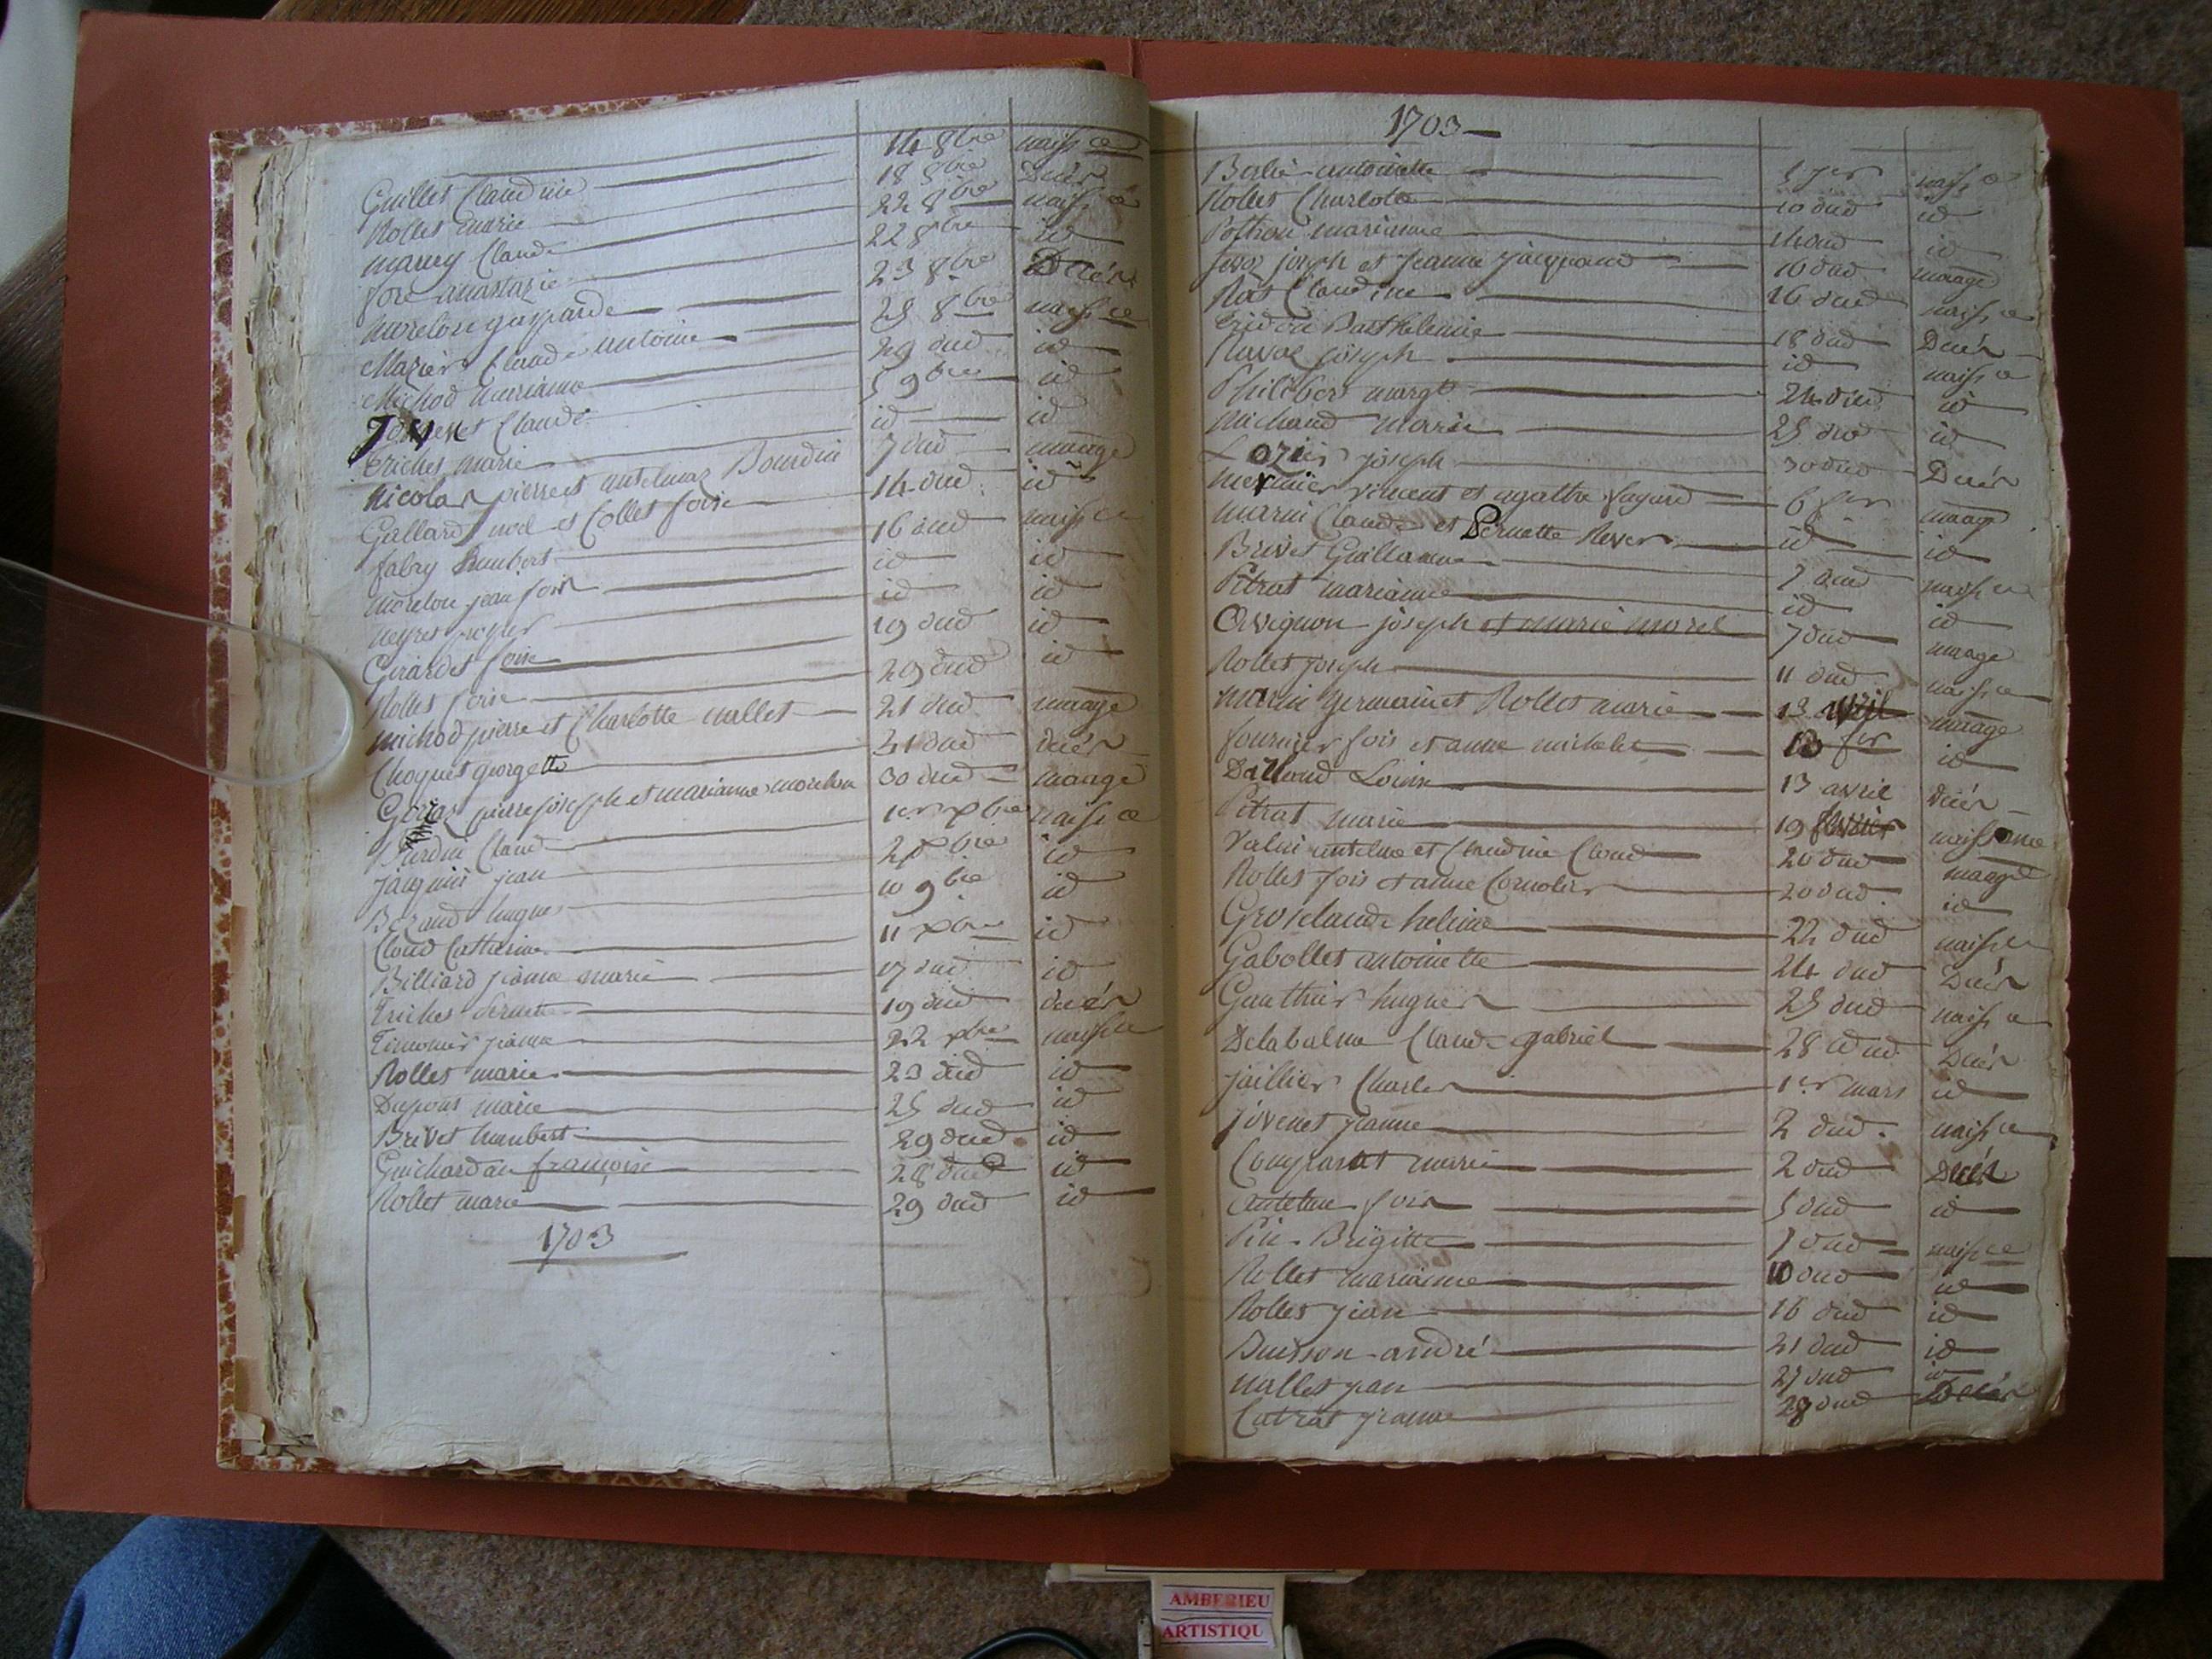 14 8bre naissce
Guillet Claudine 18 8bre Décès
Rollet marie 22 8bre naissce
marcy Claude 22 8bre id
foré anastazie 23 8bre Décès
morelon gasparde 25 8bre naissce
Mazier Claude antoine 29 dud id
Michod marianne 5 9bre id
Claude id id
Triches marie 7 dud mariage
Nicolas pierre et antelmaz Bourdin 14 dud id
Gallard noel et Collet foise 16 dud naissce
fabry humbert id id
morelon jean fois id id
neyret 19 dud id
Girardet foise 20 dud id
Rollet foise 21 dud mariage
michod pierre et Charlotte nallet 21 dud décès
Choquet georgette 30 dud mariage
pierre joseph et marianne morelon 1er xbre naissce
Claude 2 xbre id
jacquin jean 10 9bre id
Beraud hugues 11 xbre id
Cloud Catherine 17 dud id
Billiard jeanne marie 19 dud décès
Triches pernette 22 xbre naissce
Timonier jeanne 23 dud id
Rollet marie 25 dud id
Dupons marie 29 dud id
Brivet humbert 28 dud id
Guichardan françoise 29 dud id
Rollet marie
1703
1703
Berlié antoinette 5 jer naissce
Rollet Charlotte 10 dud id
Pothon marianne 14 dud id
joseph et jeanne jacquand 16 dud mariage
Rat Claudine 16 dud naissce
Barthelemie 18 dud Décès
Raval joseph id naissce
Philibert margte 24 dud id
Michaud marie 25 dud id
Lozier joseph 30 dud Décès
vincent et agathe fayard 6 fer mariage
marin Claude et Pernette Rever id id
Brivet Guillaume 7 dud naissce
Pitrat marianne id id
Avignon joseph et marie morel 7 dud mariage
Rollet joseph 11 dud naissce
marin germain et Rollet marie 13 avril mariage
fournier fois et anne michelet 13 fer id
Dalloud Louise 13 avril décès
Pitrat marie 19 février naissance
Valin antelme et Claudine Cloud 20 dud mariage
Rollet fois et anne Cornolier 20 dud id
Groselaude heleine 22 dud naissce
Gabollet antoinette 24 dud Décès
Gauthier hugues 25 dud naissce
Delabalme Claude gabriel 28 dud Décès
jaillier Charles 1er mars id
jovenet jeanne 2 dud naissce
Comparat marie 2 dud Décès
Antelme fois 5 dud id
Pin Brigitte 7 dud naissce
Rollet marianne 10 dud id
Rollet jean 16 dud id
Buisson andré 21 dud id
nallet jean 27 dud id
Cutrat jeanne 28 dud Décès
AMBERIEU
ARTISTIQU